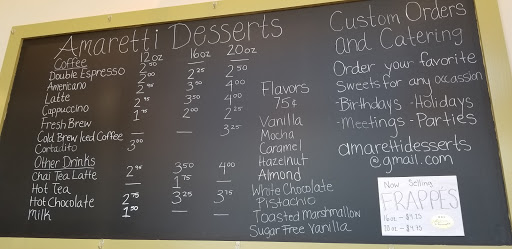 Amaretti Desserts
Coffee 12oz 16oz 20oz
Double Espresso 2⁵⁰
Americano 2⁰⁰ 2²⁵ 2⁵⁰
Latte 2⁹⁵ 3⁵⁰ 4⁰⁰
Cappuccino 2⁹⁵ 3⁵⁰ 4⁰⁰
Fresh Brew 1⁷⁵ 2⁰⁰ 2²⁵
Cold Brew Iced Coffee — — 3²⁵
Cortadito 3⁰⁰
Other Drinks
Chai Tea Latte 2⁹⁵ 3⁵⁰ 4⁰⁰
Hot Tea — 1⁷⁵ —
Hot Chocolate 2⁷⁵ 3²⁵ 3⁷⁵
Milk 1⁵⁰ — —
Flavors
75¢
Vanilla
Mocha
Caramel
Hazelnut
Almond
White Chocolate
Pistachio
Toasted Marshmallow
Sugar Free Vanilla
Custom Orders
and Catering
Order your favorite
Sweets for any occassion
-Birthdays -Holidays
-Meetings -Parties
amarettidesserts
@gmail.com
Now Selling
FRAPPES
16oz - $4.25
20oz - $4.75